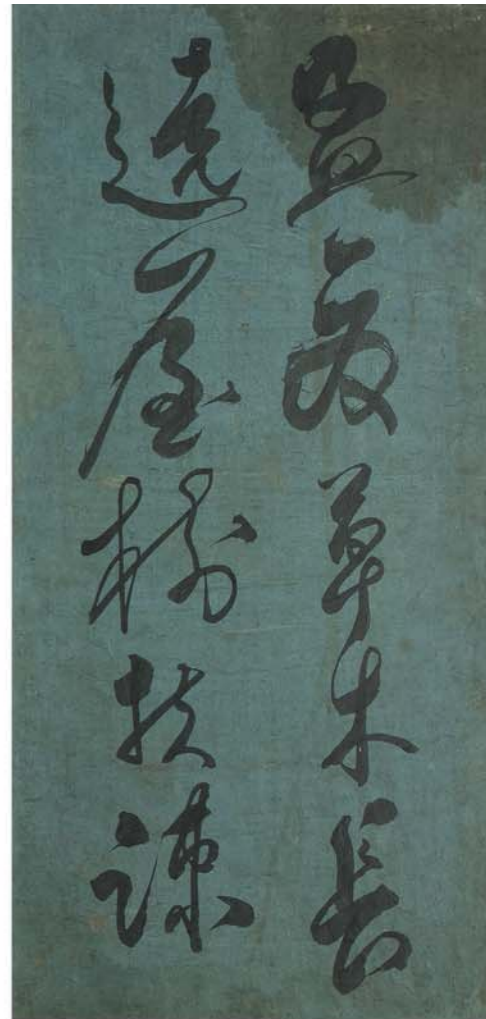 孟夏草木長
遶屋樹扶疎